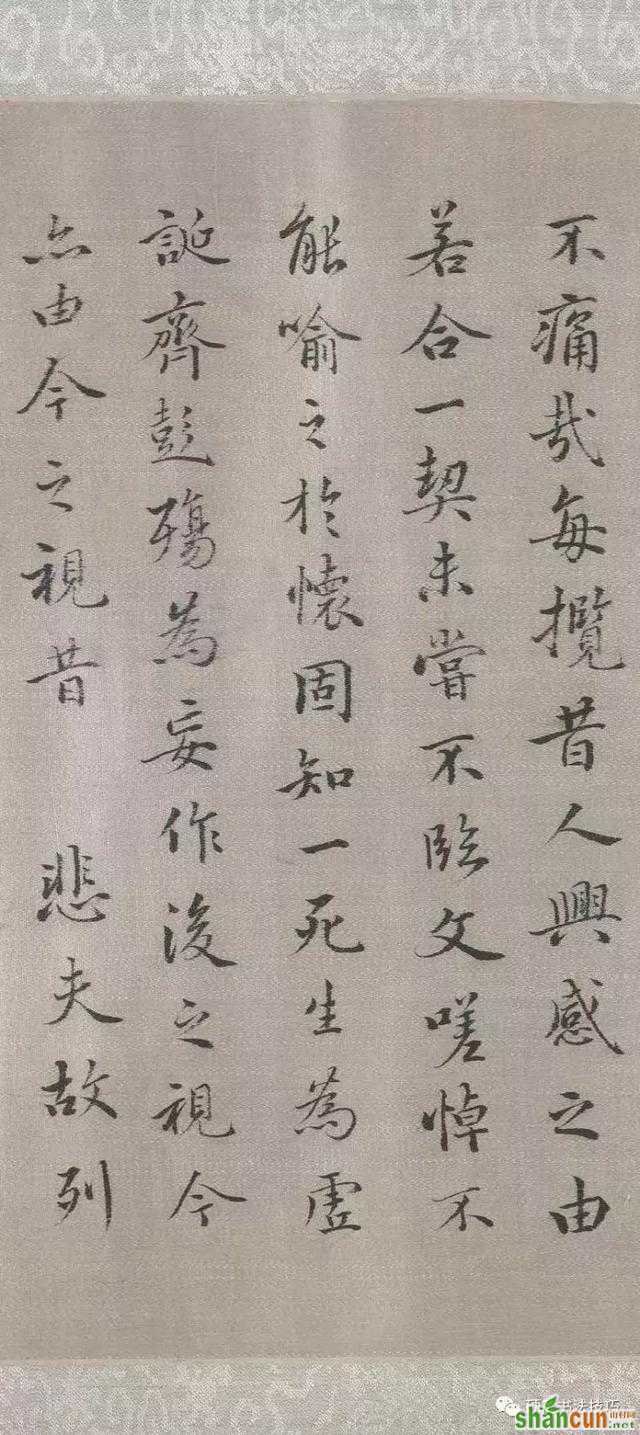 不痛哉每攬昔人興感之由
若合一契未嘗不臨文嗟悼不
能喻之於懷固知一死生為虛
誕齊彭殤為妄作後之視今
亦由今之視昔 悲夫故列
书法技巧
shancun
.net